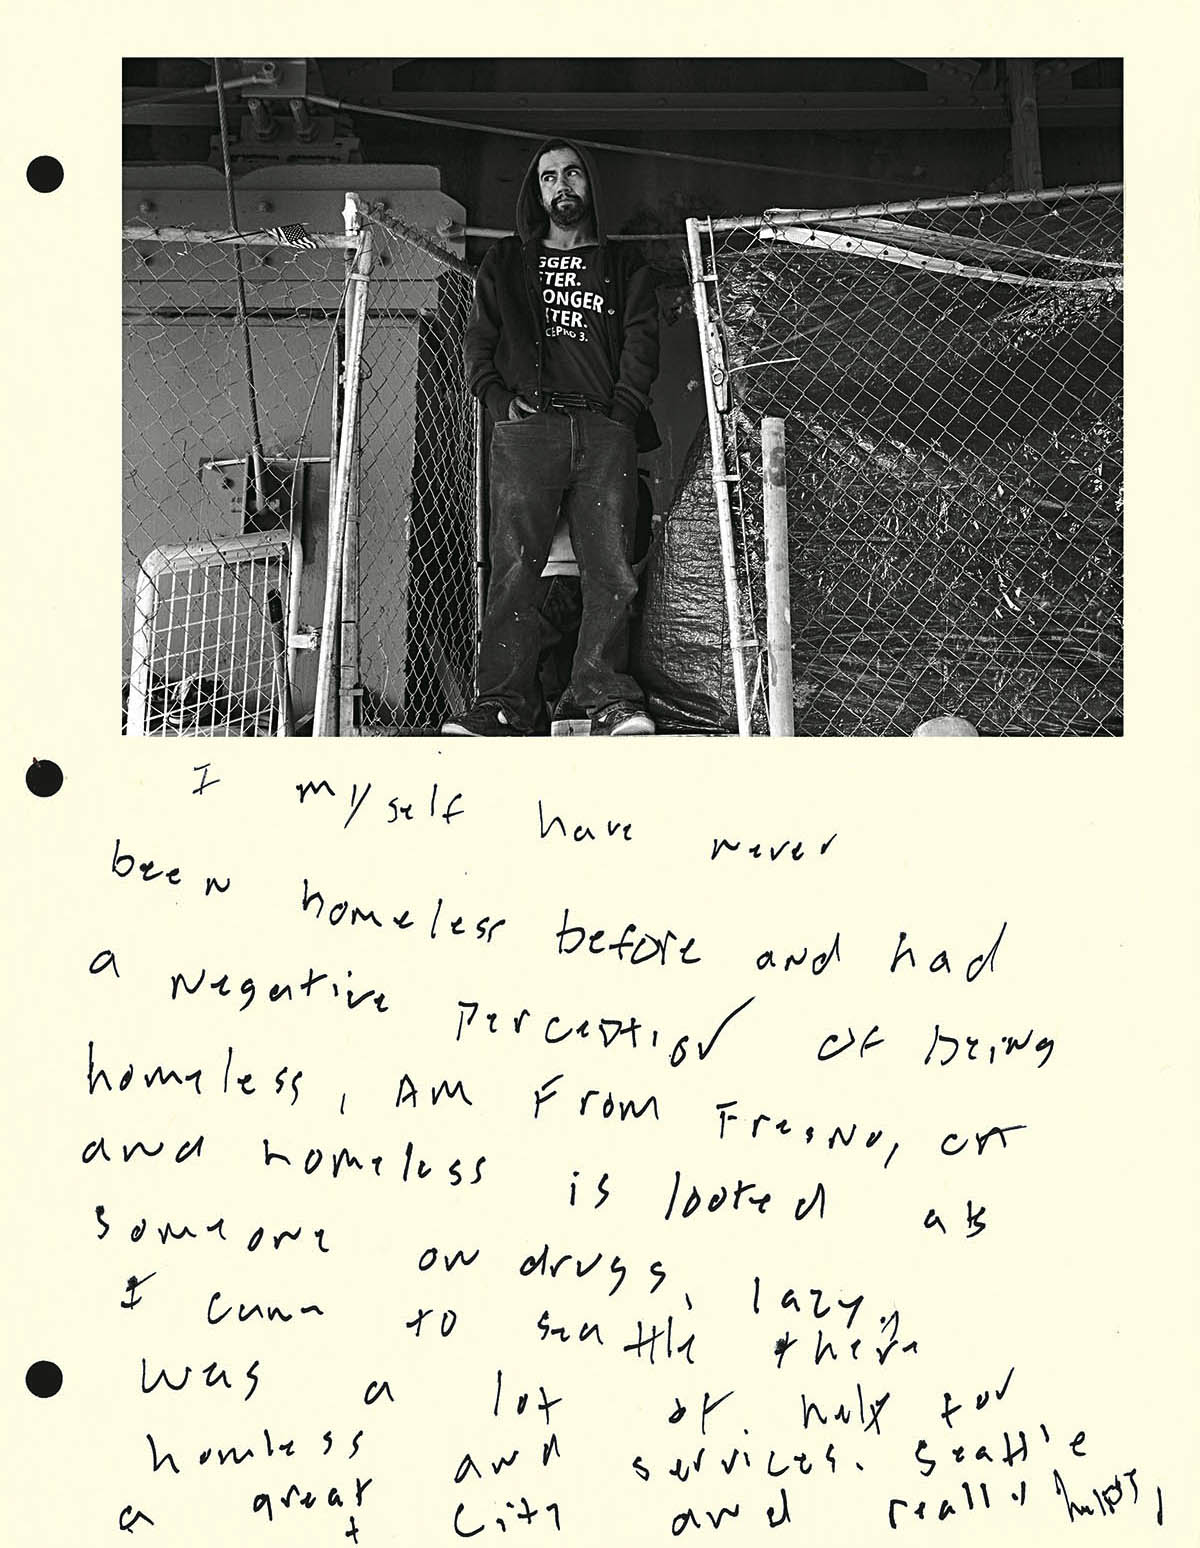 GGER.
TER.
ONGER
TER.
CEPRO 3.
I myself have never
been homeless before and had
a Negative Perception of being
homeless, AM From Fresno, CA
and homeless is looked as
someone on drugs, lazy,
I came to seattle there
was a lot of help for
homless and services. Seattle
a great City and really helps,